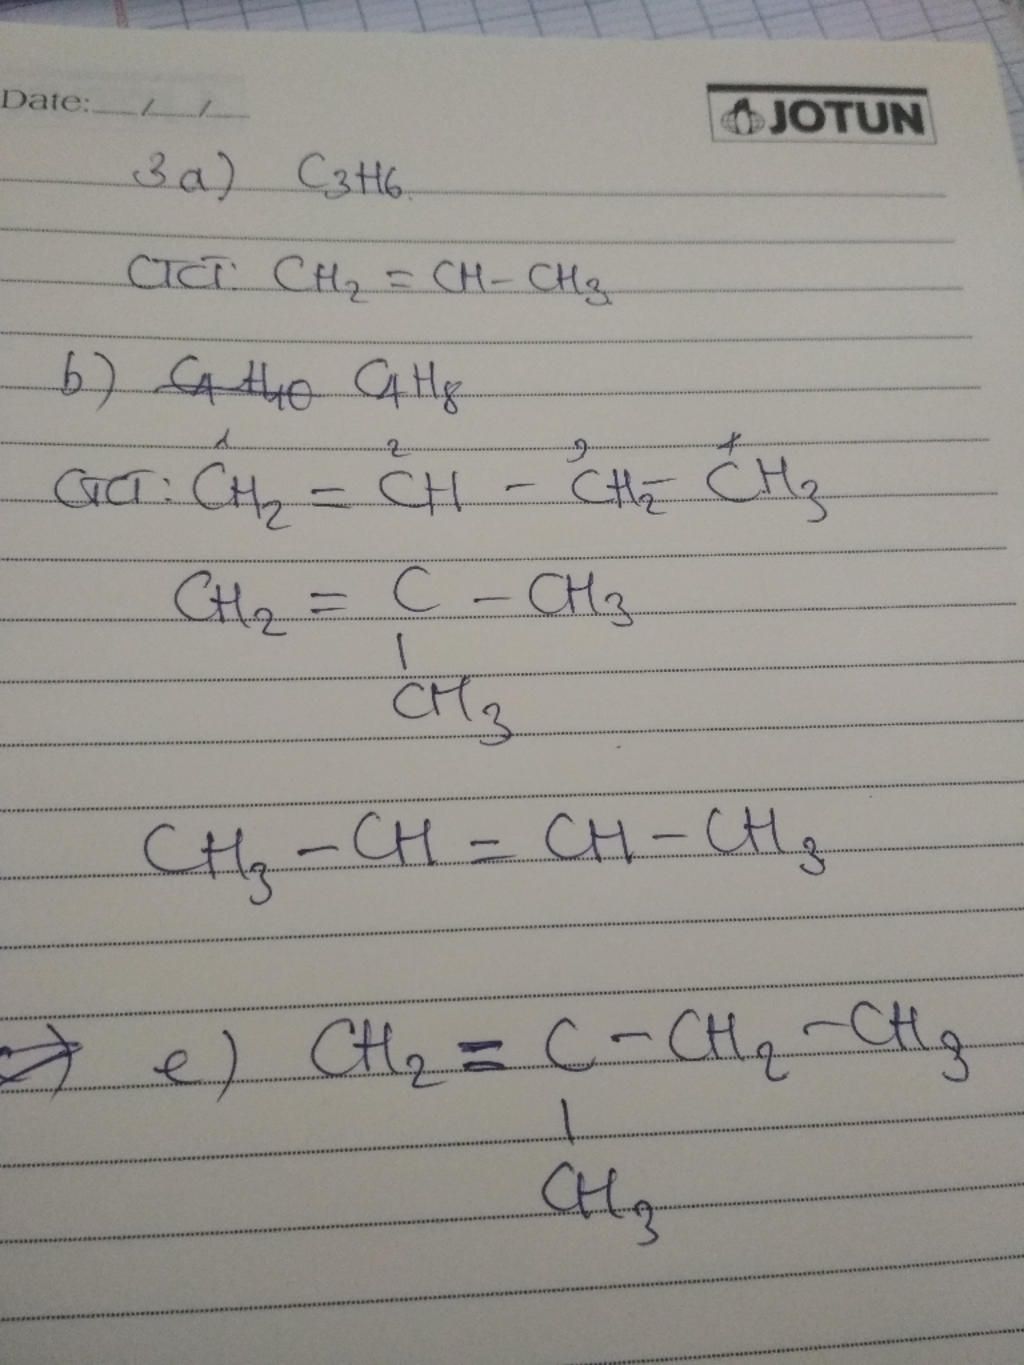 Date: __/__/__
JOTUN
3a) C3H6.
CTCT: CH2 = CH - CH3
b) C4H10 C4H8
1 2 3 4
CTCT: CH2 = CH - CH2 - CH3
CH2 = C - CH3
|
CH3
CH3 - CH = CH - CH3
e) CH2 = C - CH2 - CH3
|
CH3